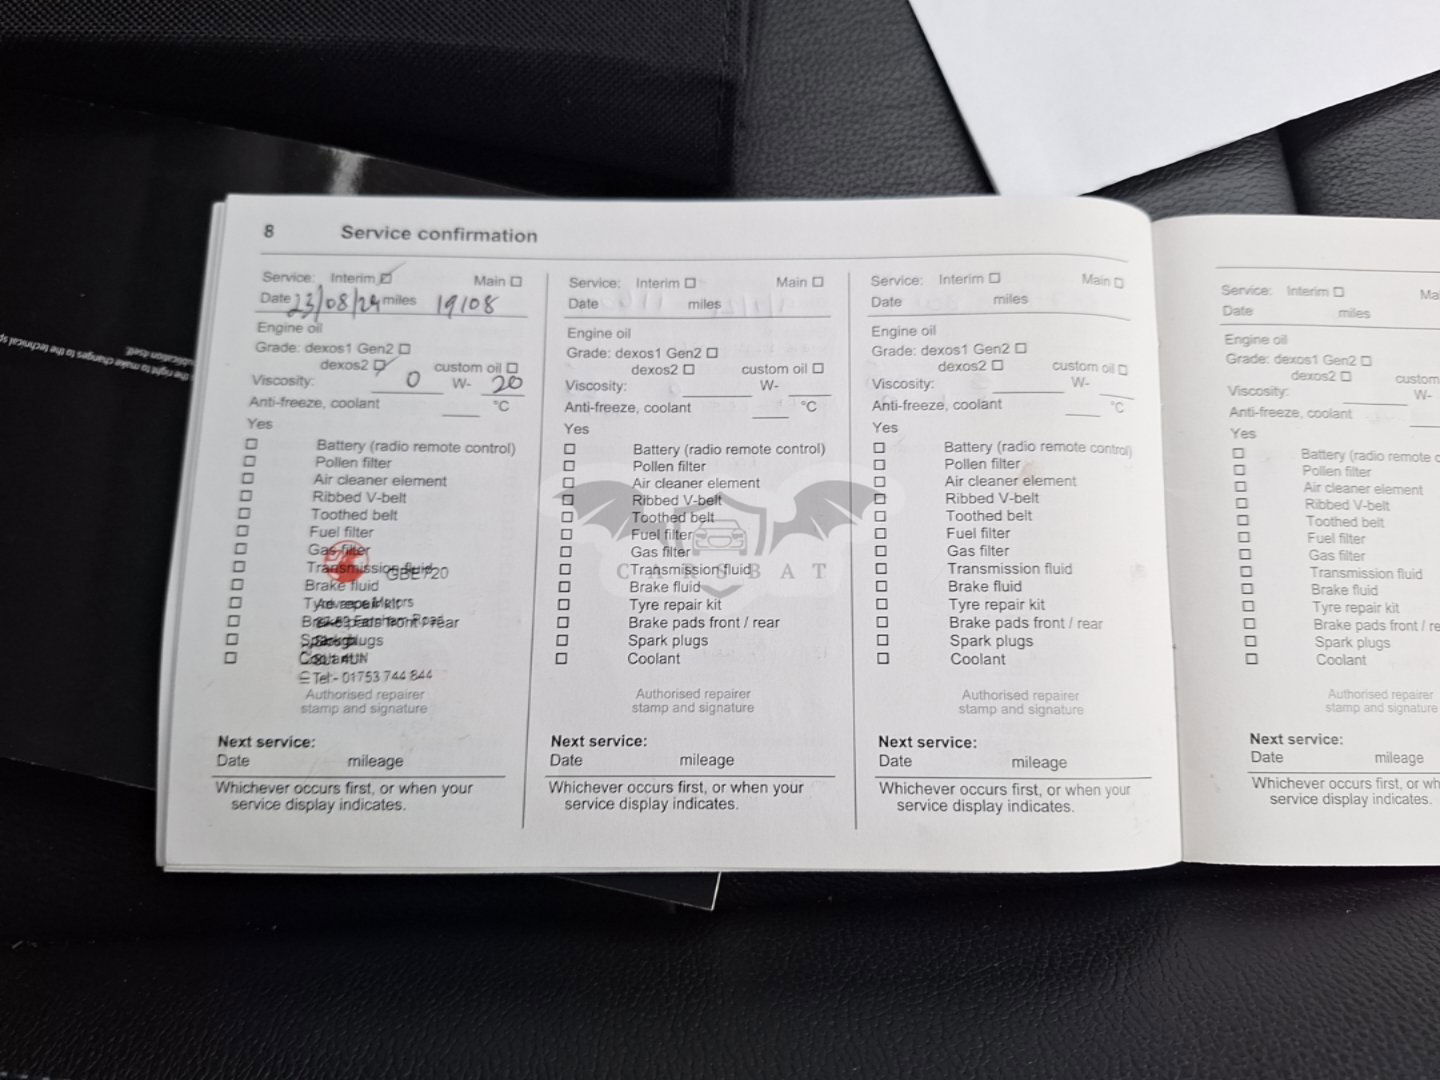 8 Service confirmation
Service: Interim Main
Date 23/08/24 miles 19108
Engine oil
Grade: dexos1 Gen2
dexos2 custom oil
Viscosity: 0 W- 20
Anti-freeze, coolant °C
Yes
Battery (radio remote control)
Pollen filter
Air cleaner element
Ribbed V-belt
Toothed belt
Fuel filter
Gas filter
Transmission fluid
Brake fluid
Tyre repair kit
Brake pads front / rear
Spark plugs
Coolant
Tel:- 01753 744 844
Authorised repairer
stamp and signature
Next service:
Date mileage
Whichever occurs first, or when your
service display indicates.
Service: Interim Main
Date miles
Engine oil
Grade: dexos1 Gen2
dexos2 custom oil
Viscosity: W-
Anti-freeze, coolant °C
Yes
Battery (radio remote control)
Pollen filter
Air cleaner element
Ribbed V-belt
Toothed belt
Fuel filter
Gas filter
Transmission fluid
Brake fluid
Tyre repair kit
Brake pads front / rear
Spark plugs
Coolant
Authorised repairer
stamp and signature
Next service:
Date mileage
Whichever occurs first, or when your
service display indicates.
Service: Interim Main
Date miles
Engine oil
Grade: dexos1 Gen2
dexos2 custom oil
Viscosity: W-
Anti-freeze, coolant °C
Yes
Battery (radio remote control)
Pollen filter
Air cleaner element
Ribbed V-belt
Toothed belt
Fuel filter
Gas filter
Transmission fluid
Brake fluid
Tyre repair kit
Brake pads front / rear
Spark plugs
Coolant
Authorised repairer
stamp and signature
Next service:
Date mileage
Whichever occurs first, or when your
service display indicates.
Service: Interim
Date miles
Engine oil
Grade: dexos1 Gen2
dexos2 custom
Viscosity: W-
Anti-freeze, coolant
Yes
Battery (radio remote
Pollen filter
Air cleaner element
Ribbed V-belt
Toothed belt
Fuel filter
Gas filter
Transmission fluid
Brake fluid
Tyre repair kit
Brake pads front /
Spark plugs
Coolant
Authorised repairer
stamp and signature
Next service:
Date mileage
Whichever occurs first, or
service display indicates.
CARSBAT
the right to make changes to the technical